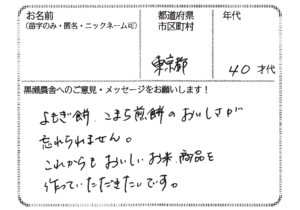 お名前
(苗字のみ・匿名・ニックネーム可)
都道府県
市区町村
年代
東京都
40才代
黒瀬農舎へのご意見・メッセージをお願いします！
よもぎ餅、こまち煎餅のおいしさが
忘れられません。
これからもおいしいお米、商品を
作っていただきたいです。